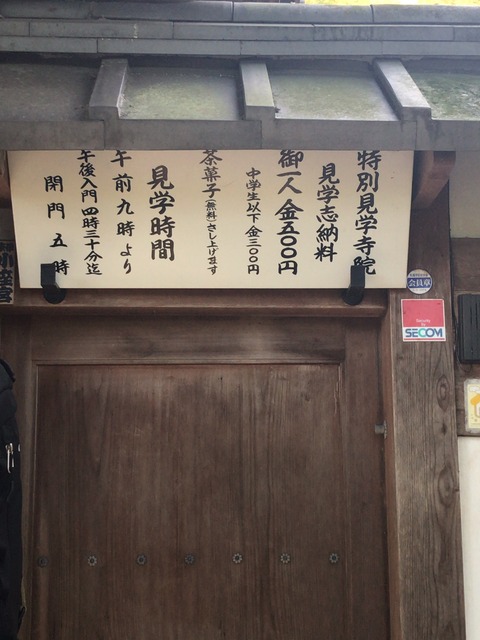 特別見学寺院
見学志納料
御一人金五〇〇円
中学生以下金三〇〇円
茶菓子(無料)さし上げます
見学時間
午前九時より
午後入門四時三十分迄
閉門五時
会員章
Security by
SECOM